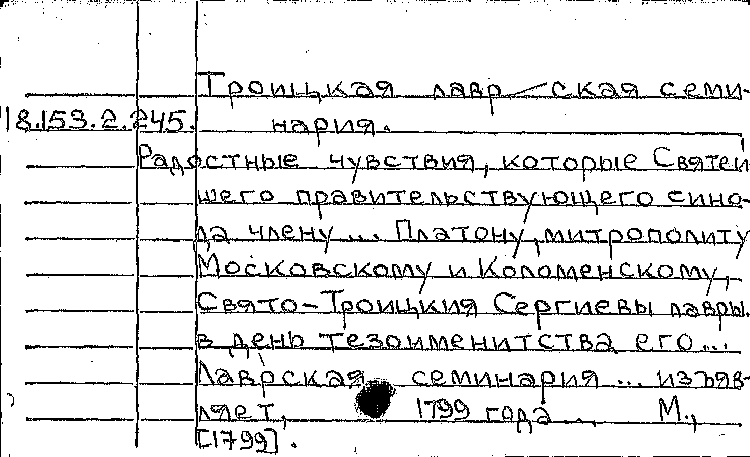 Троицкая лавр—ская семи-
18.153.2.245.
нария.
Радостные чувствия, которые Святей
шего правительствующего сино-
да члену... Платону, митрополиту
Московскому и Коломенскому,
Свято-Троицкия Сергиевы лавры.
в день тезоименитства его...
Лаврская семинария ... изъяв-
ляет, 1799 года ..., М.,
[1799].